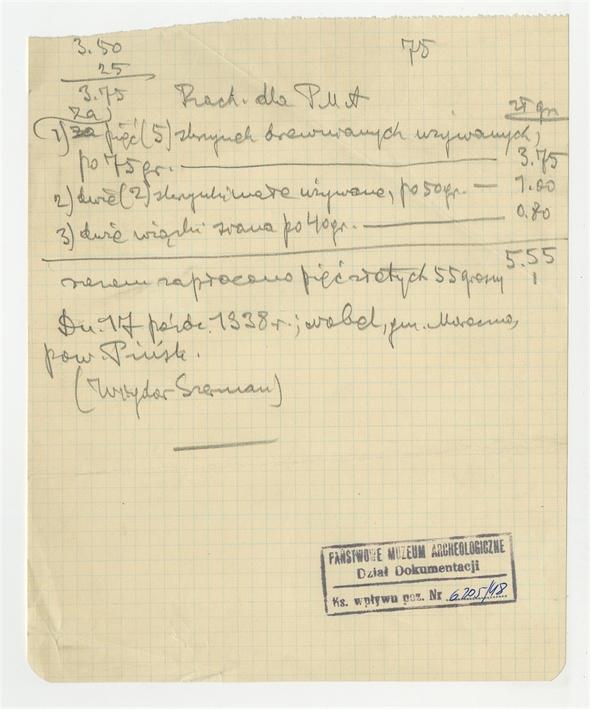 3.50
25
3.75
75
Rach. dla PMA
zł gr.
za
1) za pięć (5) skrzynek drewnianych używanych,
po 75 gr. — 3.75
2) dwie (2) skrzynki małe używane, po 50 gr. — 1.00
3) dwie wiązki siana po 40 gr. — 0.80
5.55
razem zapłacono pięć złotych 55 groszy
Dn. 17 paźdz. 1938 r.; gm. Moroczno,
pow. Pińsk.
(Izydor Szerman)
PAŃSTWOWE MUZEUM ARCHEOLOGICZNE
Dział Dokumentacji
Ks. wpływu poz. Nr 6205/48